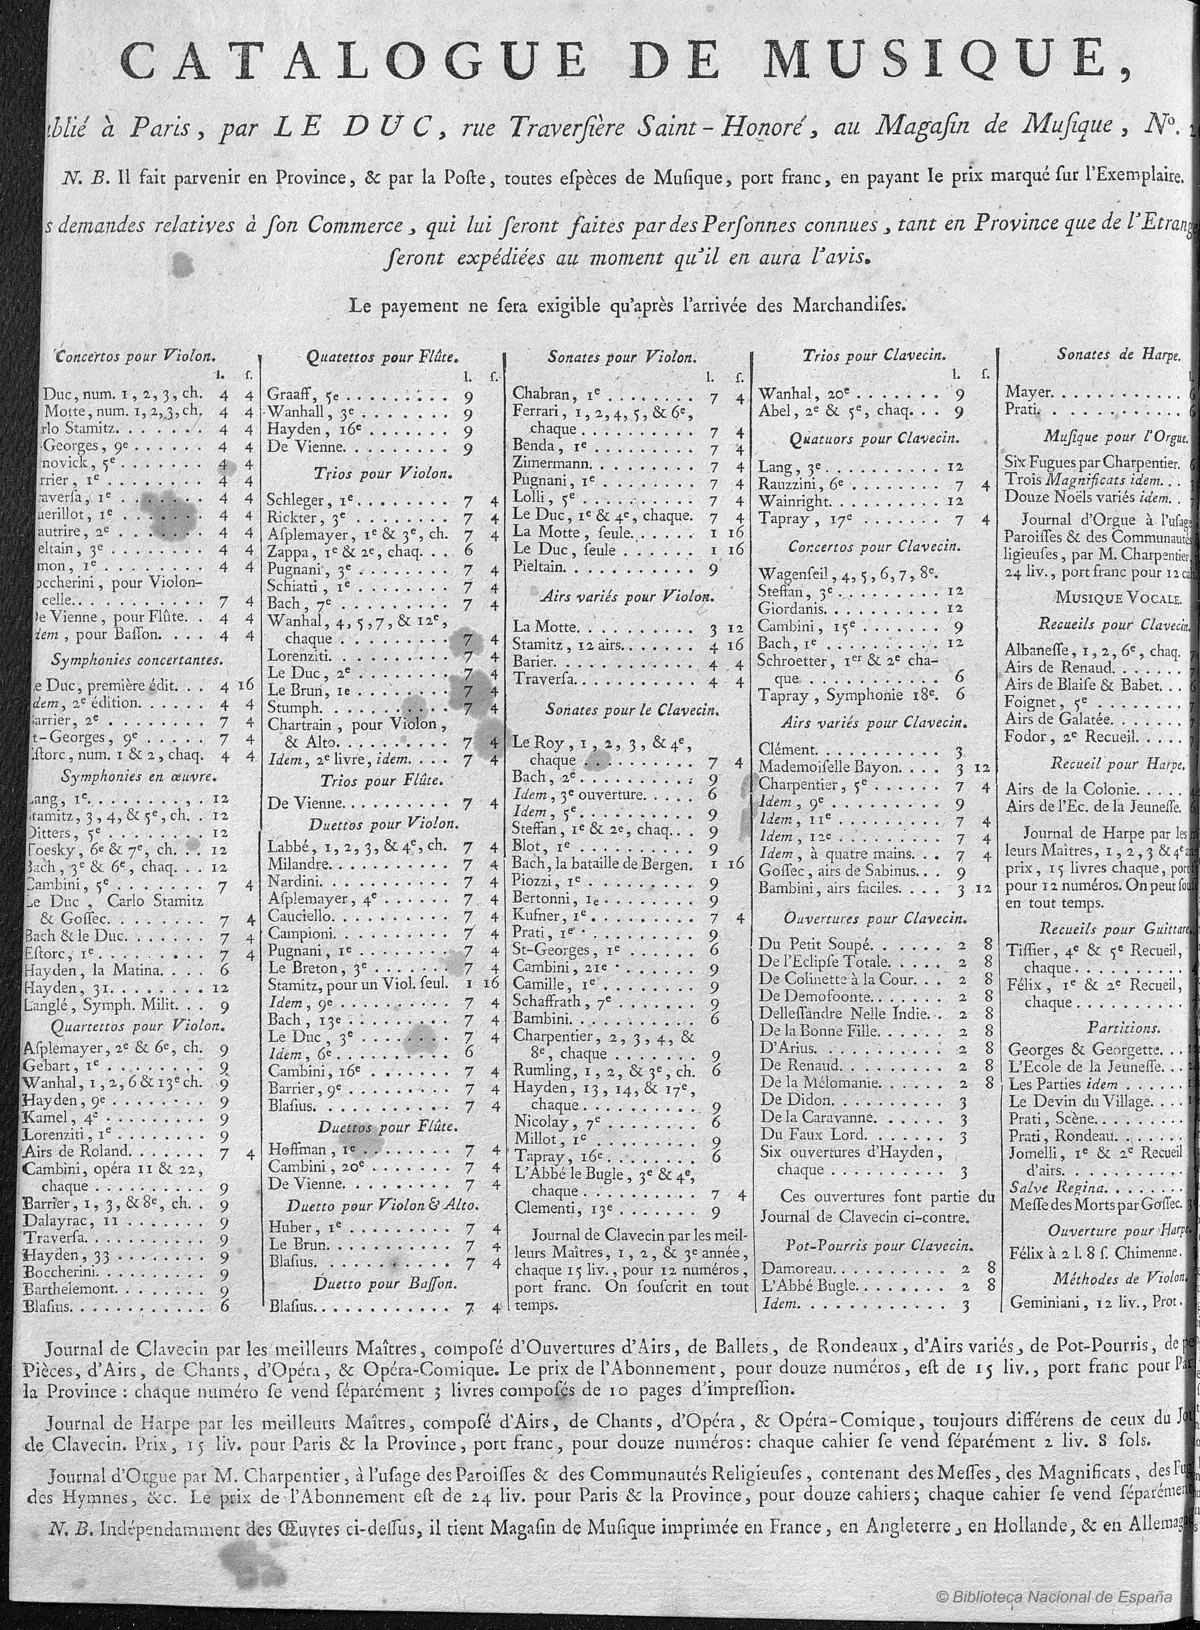 CATALOGUE DE MUSIQUE,
ublié à Paris, par LE DUC, rue Traverſière Saint-Honoré, au Magaſin de Muſique, Nº.
N. B. Il fait parvenir en Province, & par la Poſte, toutes eſpèces de Muſique, port franc, en payant le prix marqué ſur l'Exemplaire.
s demandes relatives à ſon Commerce, qui lui ſeront faites par des Perſonnes connues, tant en Province que de l'Etrang
ſeront expédiées au moment qu'il en aura l'avis.
Le payement ne ſera exigible qu'après l'arrivée des Marchandiſes.
Concertos pour Violon.
l. ſ.
Duc, num. 1, 2, 3, ch. 4 4
Motte, num. 1, 2, 3, ch. 4 4
rlo Stamitz. 4 4
Georges, 9e 4 4
novick, 5e 4 4
rrier, 1e 4 4
raverſa, 1e 4 4
uerillot, 1e 4 4
autrire, 2e 4 4
eltain, 3e 4 4
mon, 1e 4 4
occherini, pour Violon-
celle. 7 4
e Vienne, pour Flûte. 4 4
dem, pour Baſſon. 4 4
Symphonies concertantes.
e Duc, première édit. 4 16
dem, 2e édition. 4 4
arrier, 2e 7 4
t-Georges, 9e 7 4
ſtorc, num. 1 & 2, chaq. 4 4
Symphonies en œuvre.
Lang, 1e 12
tamitz, 3, 4, & 5e, ch. 12
Ditters, 5e 12
Toesky, 6e & 7e, ch. 12
Bach, 3e & 6e, chaq. 12
Cambini, 5e 7 4
Le Duc, Carlo Stamitz
& Goſſec. 7 4
Bach & le Duc. 7 4
Eſtorc, 1e 7 4
Hayden, la Matina. 6
Hayden, 31. 12
Langlé, Symph. Milit. 9
Quartettos pour Violon.
Aſplemayer, 2e & 6e, ch. 9
Gebart, 1e 9
Wanhal, 1, 2, 6 & 13e ch. 9
Hayden, 9e 9
Kamel, 4e 9
Lorenziti, 1e 9
Airs de Roland. 7 4
Cambini, opéra 11 & 22,
chaque 9
Barrier, 1, 3, & 8e, ch. 9
Dalayrac, 11 9
Traverſa. 9
Hayden, 33 9
Boccherini. 9
Barthelemont. 9
Blaſius. 6
Quatettos pour Flûte.
l. ſ.
Graaff, 5e 9
Wanhall, 3e 9
Hayden, 16e 9
De Vienne. 9
Trios pour Violon.
Schleger, 1e 7 4
Rickter, 3e 7 4
Aſplemayer, 1e & 3e, ch. 7 4
Zappa, 1e & 2e, chaq. 6
Pugnani, 3e 7 4
Schiatti, 1e 7 4
Bach, 7e 7 4
Wanhal, 4, 5, 7, & 12e,
chaque 7 4
Lorenziti. 7 4
Le Duc, 2e 7 4
Le Brun, 1e 7 4
Stumph. 7 4
Chartrain, pour Violon,
& Alto. 7 4
Idem, 2e livre, idem. 7 4
Trios pour Flûte.
De Vienne. 7 4
Duettos pour Violon.
Labbé, 1, 2, 3, & 4e, ch. 7 4
Milandre. 7 4
Nardini. 7 4
Aſplemayer, 4e 7 4
Cauciello. 7 4
Campioni. 7 4
Pugnani, 1e 7 4
Le Breton, 3e 7 4
Stamitz, pour un Viol. ſeul. 1 16
Idem, 9e 7 4
Bach, 13e 7 4
Le Duc, 3e 7 4
Idem, 6e 6
Cambini, 16e 7 4
Barrier, 9e 7 4
Blaſius. 7 4
Duettos pour Flûte.
Hoffman, 1e 7 4
Cambini, 20e 7 4
De Vienne. 7 4
Duetto pour Violon & Alto.
Huber, 1e 7 4
Le Brun. 7 4
Blaſius. 7 4
Duetto pour Baſſon.
Blaſius. 7 4
Sonates pour Violon.
l. ſ.
Chabran, 1e 7 4
Ferrari, 1, 2, 4, 5, & 6e,
chaque 7 4
Benda, 1e 7 4
Zimermann. 7 4
Pugnani, 1e 7 4
Lolli, 5e 7 4
Le Duc, 1e & 4e, chaque. 7 4
La Motte, ſeule. 1 16
Le Duc, ſeule 1 16
Pieltain. 9
Airs variés pour Violon.
La Motte. 3 12
Stamitz, 12 airs. 4 16
Barier. 4 4
Traverſa. 4 4
Sonates pour le Clavecin.
Le Roy, 1, 2, 3, & 4e,
chaque 7 4
Bach, 2e 9
Idem, 3e ouverture. 6
Idem, 5e 9
Steffan, 1e & 2e, chaq. 9
Blot, 1e 9
Bach, la bataille de Bergen. 1 16
Piozzi, 1e 9
Bertonni, 1e 9
Kufner, 1e 7 4
Prati, 1e 9
St-Georges, 1e 6
Cambini, 21e 9
Camille, 1e 9
Schaffrath, 7e 9
Bambini. 6
Charpentier, 2, 3, 4, &
8e, chaque 9
Rumling, 1, 2, & 3e, ch. 6
Hayden, 13, 14, & 17e,
chaque 9
Nicolay, 7e 6
Millot, 1e 9
Tapray, 16e 6
L'Abbé le Bugle, 3e & 4e,
chaque 7 4
Clementi, 13e 9
Journal de Clavecin par les meil-
leurs Maîtres, 1, 2, & 3e année,
chaque 15 liv., pour 12 numéros,
port franc. On ſouſcrit en tout
temps.
Trios pour Clavecin.
l. ſ.
Wanhal, 20e 9
Abel, 2e & 5e, chaq. 9
Quatuors pour Clavecin.
Lang, 3e 12
Rauzzini, 6e 7 4
Wainright. 12
Tapray, 17e 7 4
Concertos pour Clavecin.
Wagenſeil, 4, 5, 6, 7, 8e.
Steffan, 3e 12
Giordanis. 12
Cambini, 15e 9
Bach, 1e 12
Schroetter, 1er & 2e cha-
que 6
Tapray, Symphonie 18e. 6
Airs variés pour Clavecin.
Clément. 3
Mademoiſelle Bayon. 3 12
Charpentier, 5e 7 4
Idem, 9e 9
Idem, 11e 7 4
Idem, 12e 7 4
Idem, à quatre mains. 7 4
Goſſec, airs de Sabinus. 9
Bambini, airs faciles. 3 12
Ouvertures pour Clavecin.
Du Petit Soupé. 2 8
De l'Eclipſe Totale. 2 8
De Colinette à la Cour. 2 8
De Demofoonte. 2 8
Delleſſandre Nelle Indie. 2 8
De la Bonne Fille. 2 8
D'Arius. 2 8
De Renaud. 2 8
De la Mélomanie. 2 8
De Didon. 3
De la Caravanne. 3
Du Faux Lord. 3
Six ouvertures d'Hayden,
chaque 3
Ces ouvertures ſont partie du
Journal de Clavecin ci-contre.
Pot-Pourris pour Clavecin.
Damoreau. 2 8
L'Abbé Bugle. 2 8
Idem. 3
Sonates de Harpe.
Mayer.
Prati.
Muſique pour l'Orgue.
Six Fugues par Charpentier.
Trois Magnificats idem.
Douze Noëls variés idem.
Journal d'Orgue à l'uſage
Paroiſſes & des Communautés
ligieuſes, par M. Charpentier
24 liv., port franc pour 12 ca
MUSIQUE VOCALE.
Recueils pour Clavecin.
Albaneſſe, 1, 2, 6e, chaq.
Airs de Renaud.
Airs de Blaiſe & Babet.
Foignet, 5e
Airs de Galatée.
Fodor, 2e Recueil.
Recueil pour Harpe.
Airs de la Colonie.
Airs de l'Ec. de la Jeuneſſe.
Journal de Harpe par les
leurs Maîtres, 1, 2, 3 & 4e
prix, 15 livres chaque, port
pour 12 numéros. On peut ſou
en tout temps.
Recueils pour Guittare.
Tiſſier, 4e & 5e Recueil,
chaque
Félix, 1e & 2e Recueil,
chaque
Partitions.
Georges & Georgette.
L'Ecole de la Jeuneſſe.
Les Parties idem
Le Devin du Village.
Prati, Scène.
Prati, Rondeau.
Jomelli, 1e & 2e Recueil
d'airs.
Salve Regina.
Meſſe des Morts par Goſſec.
Ouverture pour Harpe.
Félix à 2 l. 8 ſ. Chimenne.
Méthodes de Violon.
Geminiani, 12 liv., Prot.
Journal de Clavecin par les meilleurs Maîtres, compoſé d'Ouvertures d'Airs, de Ballets, de Rondeaux, d'Airs variés, de Pot-Pourris, de pe
Pièces, d'Airs, de Chants, d'Opéra, & Opéra-Comique. Le prix de l'Abonnement, pour douze numéros, eſt de 15 liv., port franc pour Par
la Province : chaque numéro ſe vend ſéparément 3 livres compoſés de 10 pages d'impreſſion.
Journal de Harpe par les meilleurs Maîtres, compoſé d'Airs, de Chants, d'Opéra, & Opéra-Comique, toujours différens de ceux du Jou
de Clavecin. Prix, 15 liv. pour Paris & la Province, port franc, pour douze numéros : chaque cahier ſe vend ſéparément 2 liv. 8 ſols.
Journal d'Orgue par M. Charpentier, à l'uſage des Paroiſſes & des Communautés Religieuſes, contenant des Meſſes, des Magnificats, des Fug
des Hymnes, &c. Le prix de l'Abonnement eſt de 24 liv. pour Paris & la Province, pour douze cahiers; chaque cahier ſe vend ſéparémen
N. B. Indépendamment des Œuvres ci-deſſus, il tient Magaſin de Muſique imprimée en France, en Angleterre, en Hollande, & en Allemag
© Biblioteca Nacional de España